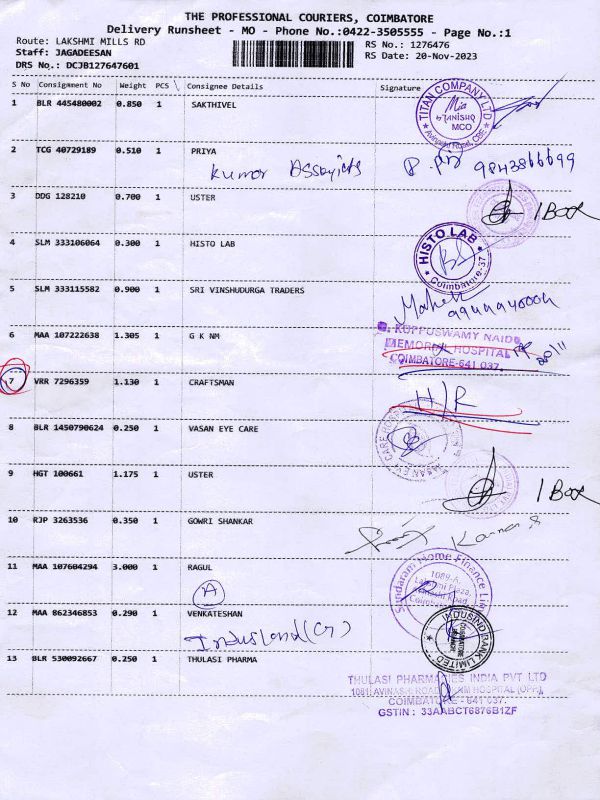 THE PROFESSIONAL COURIERS, COIMBATORE
Delivery Runsheet - MO - Phone No.:0422-3505555 - Page No.:1
Route: LAKSHMI MILLS RD
Staff: JAGADEESAN
DRS No.: DCJB127647601
RS No.: 1276476
RS Date: 20-Nov-2023
S No Consignment No Weight PCS Consignee Details Signature
1 BLR 445480002 0.850 1 SAKTHIVEL
TITAN COMPANY LTD
Mia
by TANISHQ
MCO
Avinashi Road, CBE
2 TCG 40729189 0.510 1 PRIYA
Kumar
9843866699
3 DDG 128210 0.700 1 USTER
1 Box
4 SLM 333106064 0.300 1 HISTO LAB
HISTO LAB
Coimbatore-37
5 SLM 333115582 0.900 1 SRI VINSHUDURGA TRADERS
6 MAA 107222638 1.305 1 G K NM
G. KUPPUSWAMY NAIDU
MEMORIAL HOSPITAL
COIMBATORE-641 037.
20/11
7 VRR 7296359 1.130 1 CRAFTSMAN
H/R
8 BLR 1450790624 0.250 1 VASAN EYE CARE
VASAN EYE CARE
9 HGT 100661 1.175 1 USTER
1 Box
10 RJP 3263536 0.350 1 GOWRI SHANKAR
11 MAA 107604294 3.000 1 RAGUL
A
Sundaram Home Finance
1089-A,
Lakshmi Plaza,
12 MAA 062346853 0.290 1 VENKATESHAN
INDUSIND BANK LIMITED
COIMBATORE
13 BLR 530092667 0.250 1 THULASI PHARMA
THULASI PHARMACIES INDIA PVT LTD
COIMBATORE - 641 037.
GSTIN : 33AABCT6876B1ZF